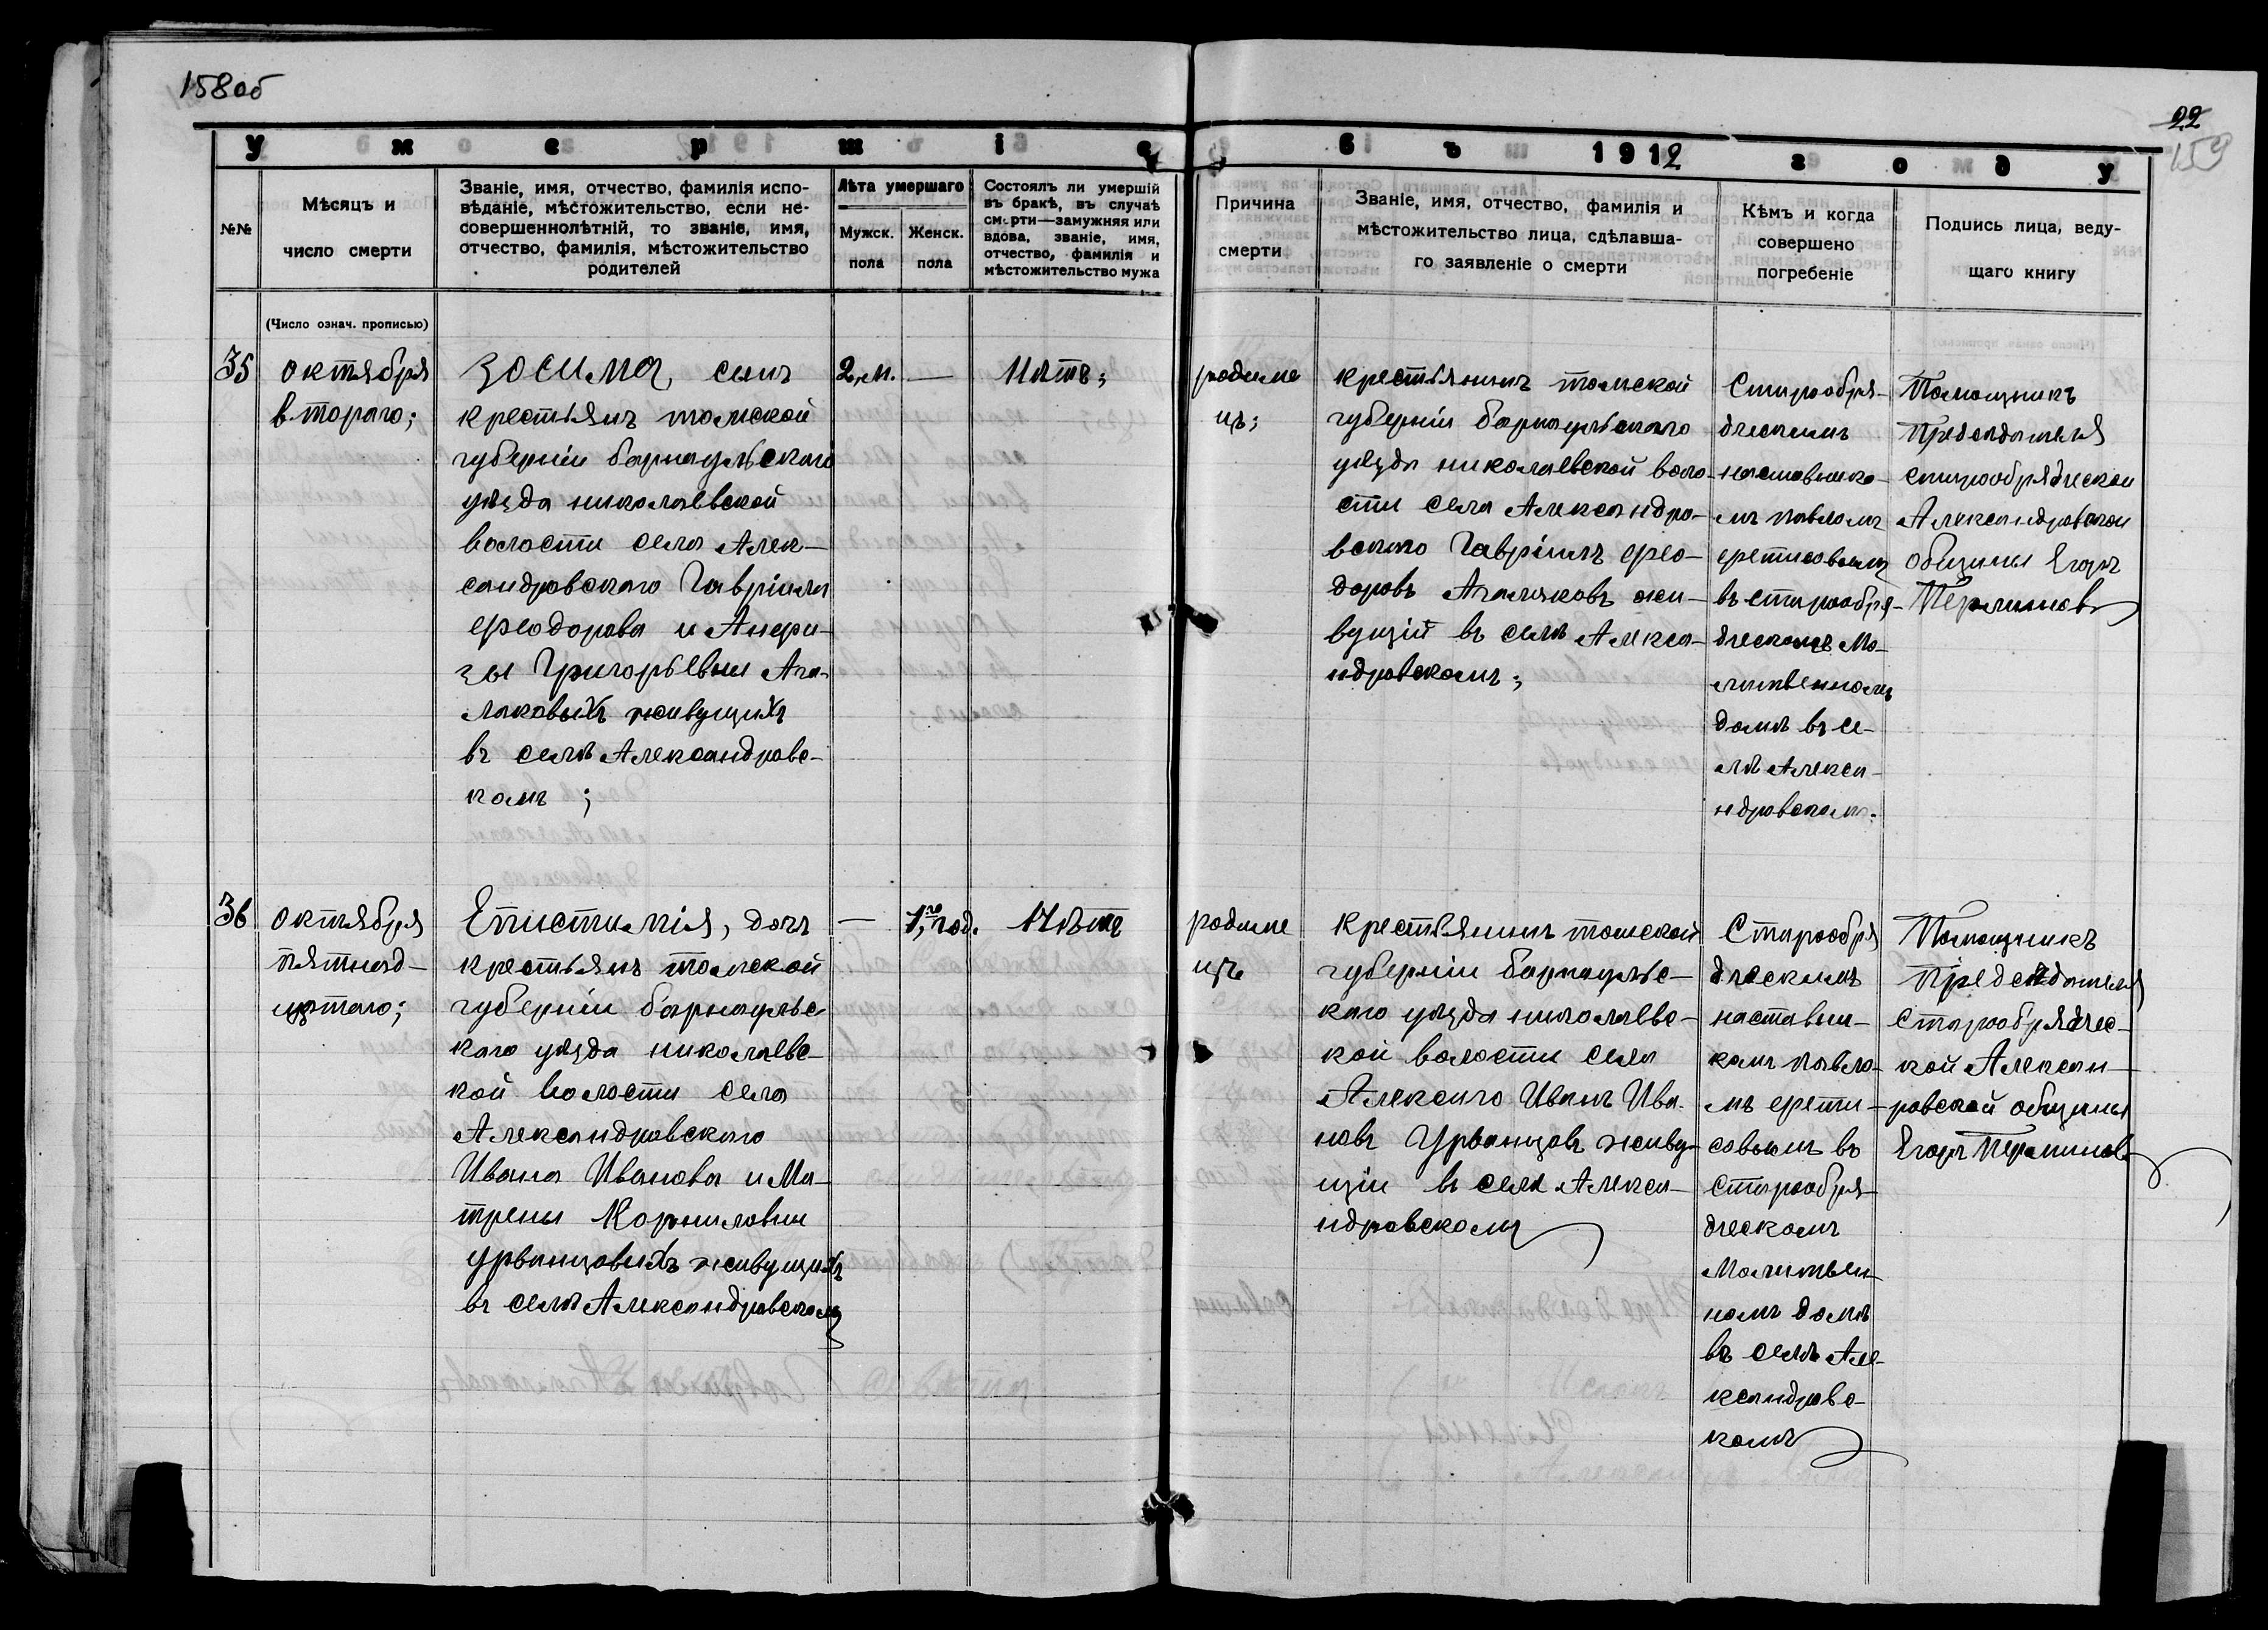 158об
22
159
Умершіе въ 1912 году
№№
Мѣсяцъ и
число смерти
(Число означ. прописью)
Званіе, имя, отчество, фамилія испо-
вѣданіе, мѣстожительство, если не-
совершеннолѣтній, то званіе, имя,
отчество, фамилія, мѣстожительство
родителей
Лѣта умершаго
Мужск.
пола
Женск.
пола
Состоялъ ли умершій
въ бракѣ, въ случаѣ
смерти—замужняя или
вдова, званіе, имя,
отчество, фамилія и
мѣстожительство мужа
Причина
смерти
Званіе, имя, отчество, фамилія и
мѣстожительство лица, сдѣлавша-
го заявленіе о смерти
Кѣмъ и когда
совершено
погребеніе
Подпись лица, веду-
щаго книгу
35
октября
втораго;
Зосима, сынъ
крестьянъ томской
губерніи барнаульскаго
уѣзда николаевской
волости села Алек-
сандровскаго Гавріила
феодорова и Анфи-
зы Григорьевны Ага-
лаковыхъ живущихъ
въ селѣ Александровс-
комъ ;
2,м.
—
Нѣтъ;
родиме
цъ;
крестьянинъ томской
губерніи барнаульскаго
уѣзда николаевской воло-
сти села Александро-
вскаго Гавріилъ фео-
доровъ Агалаковъ жи-
вущій въ селѣ Алекса-
ндровскомъ;
Старообря-
дческимъ
наставнико-
мъ павломъ
фетисовымъ
въ старообря-
дческомъ Мо-
литвенномъ
домѣ въ се-
лѣ Алекса-
ндровскомъ.
Помощникъ
Председателя
старообрядческой
Александровской
общины Егоръ
Перминовъ
36
октября
пятнад-
цатаго;
Епистимія, дочь
крестьянъ томской
губерніи барнаульс-
каго уѣзда николаевс-
кой волости села
Александровскаго
Ивана Иванова и Ма-
трены Корниловны
урванцовыхъ живущихъ
въ селѣ Александровскомъ
—
1,го год.
Нѣтъ
родиме
цъ
Крестьянинъ томской
губерніи барнаульс-
каго уѣзда николаевс-
кой волости села
Алексаго Иванъ Ива-
новъ Урванцовъ живу-
щіи въ селѣ Алекса-
ндровскомъ
Старообря
дческимъ
наставни-
комъ павло-
мъ фети-
совымъ въ
старообря-
дческомъ
Молитвен-
номъ домѣ
въ селѣ Але-
ксандровс-
комъ
Помощникъ
Председателя
Старообрядчес-
кой Алексан-
ровской общины
Егоръ Перминовъ